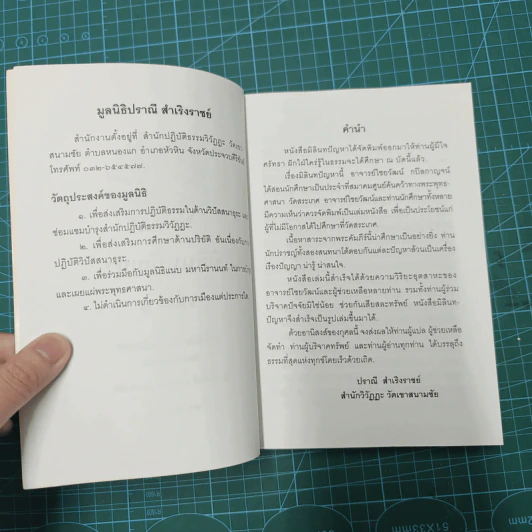 มูลนิธิปราณี สำเริงราชย์
สำนักงานตั้งอยู่ที่ สำนักปฏิบัติธรรมวิวัฏฏะ วัดเขา
สนามชัย ตำบลหนองแก อำเภอหัวหิน จังหวัดประจวบคีรีขันธ์
โทรศัพท์ ๐๓๒-๖๕๔๕๘๗.
วัตถุประสงค์ของมูลนิธิ
๑. เพื่อส่งเสริมการปฏิบัติธรรมในด้านวิปัสสนาธุระ และ
ซ่อมแซมบำรุงสำนักปฏิบัติธรรมวิวัฏฏะ.
๒. เพื่อส่งเสริมการศึกษาด้านปริยัติ อันเนื่องกับการ
ปฏิบัติวิปัสสนาธุระ.
๓. เพื่อร่วมมือกับมูลนิธิแนบ มหานีรานนท์ ในการบำรุง
และเผยแผ่พระพุทธศาสนา.
๔. ไม่ดำเนินการเกี่ยวข้องกับการเมืองแต่ประการใด
คำนำ
หนังสือมิลินทปัญหาได้จัดพิมพ์ออกมาให้ท่านผู้มีใจ
ศรัทธา ฝักใฝ่ใคร่รู้ในธรรมจะได้ศึกษา ณ บัดนี้แล้ว.
เรื่องมิลินทปัญหานี้ อาจารย์ไชยวัฒน์ กปิลกาญจน์
ได้สอนนักศึกษาเป็นประจำที่สมาคมศูนย์ค้นคว้าทางพระพุทธ-
ศาสนา วัดสระเกศ อาจารย์ไชยวัฒน์และท่านนักศึกษาทั้งหลาย
มีความเห็นว่าควรจัดพิมพ์เป็นเล่มหนังสือ เพื่อเป็นประโยชน์แก่
ผู้ที่ไม่มีโอกาสได้ไปศึกษาที่วัดสระเกศ.
เนื้อหาสาระจากพระคัมภีร์นี้น่าศึกษาเป็นอย่างยิ่ง ท่าน
นักปราชญ์ทั้งสองสนทนาโต้ตอบกันแต่ละปัญหาล้วนเป็นเครื่อง
เรืองปัญญา น่ารู้ น่าสนใจ.
หนังสือเล่มนี้สำเร็จได้ด้วยความวิริยะอุตสาหะของ
อาจารย์ไชยวัฒน์และผู้ช่วยเหลือหลายท่าน รวมทั้งท่านผู้ร่วม
บริจาคปัจจัยมิใช่น้อย ช่วยกันเสียสละทรัพย์ หนังสือมิลินท-
ปัญหาจึงสำเร็จเป็นรูปเล่มขึ้นมาได้.
ด้วยอานิสงส์ของกุศลนี้ จงส่งผลให้ท่านผู้แปล ผู้ช่วยเหลือ
จัดทำ ท่านผู้บริจาคทรัพย์ และท่านผู้อ่านทุกท่าน ได้บรรลุถึง
ธรรมที่สุดแห่งทุกข์โดยเร็วด้วยเถิด.
ปราณี สำเริงราชย์
สำนักวิวัฏฏะ วัดเขาสนามชัย